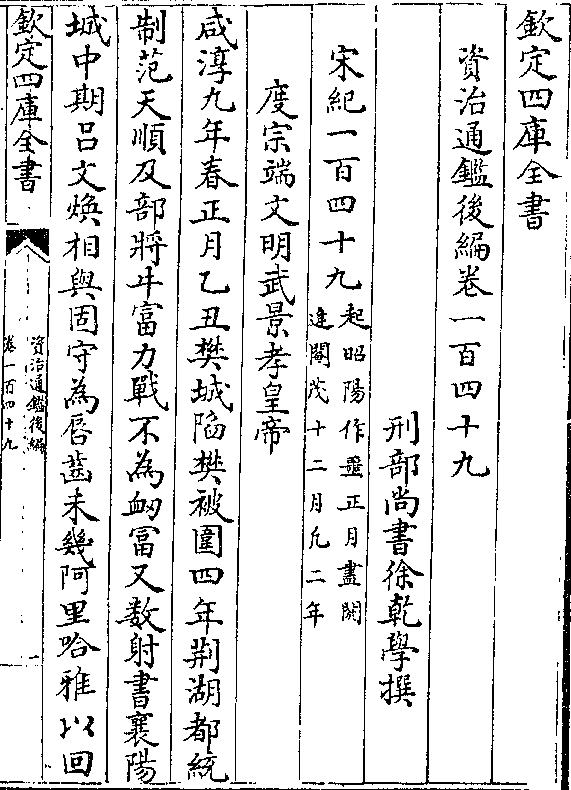 欽定四庫全書
資治通鑑後編卷一百四十九
刑部尚書徐乾學撰
宋紀一百四十九起昭陽作噩正月盡閼
逢閹茂十二月凡二年
度宗端文明武景孝皇帝
咸淳九年春正月乙丑樊城陷樊被圍四年荆湖都統
制范天順及部將牛富力戰不為衂富又数射書襄陽
城中期吕文焕相與固守為唇齒未幾阿里哈雅以回
欽定四庫全書
資治通鑑後編
卷一百四十九